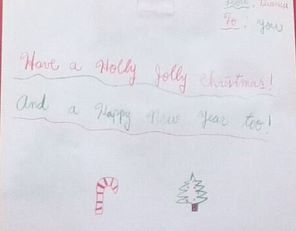 To: you
Have a Holly Jolly Christmas!
And a Happy New Year too!